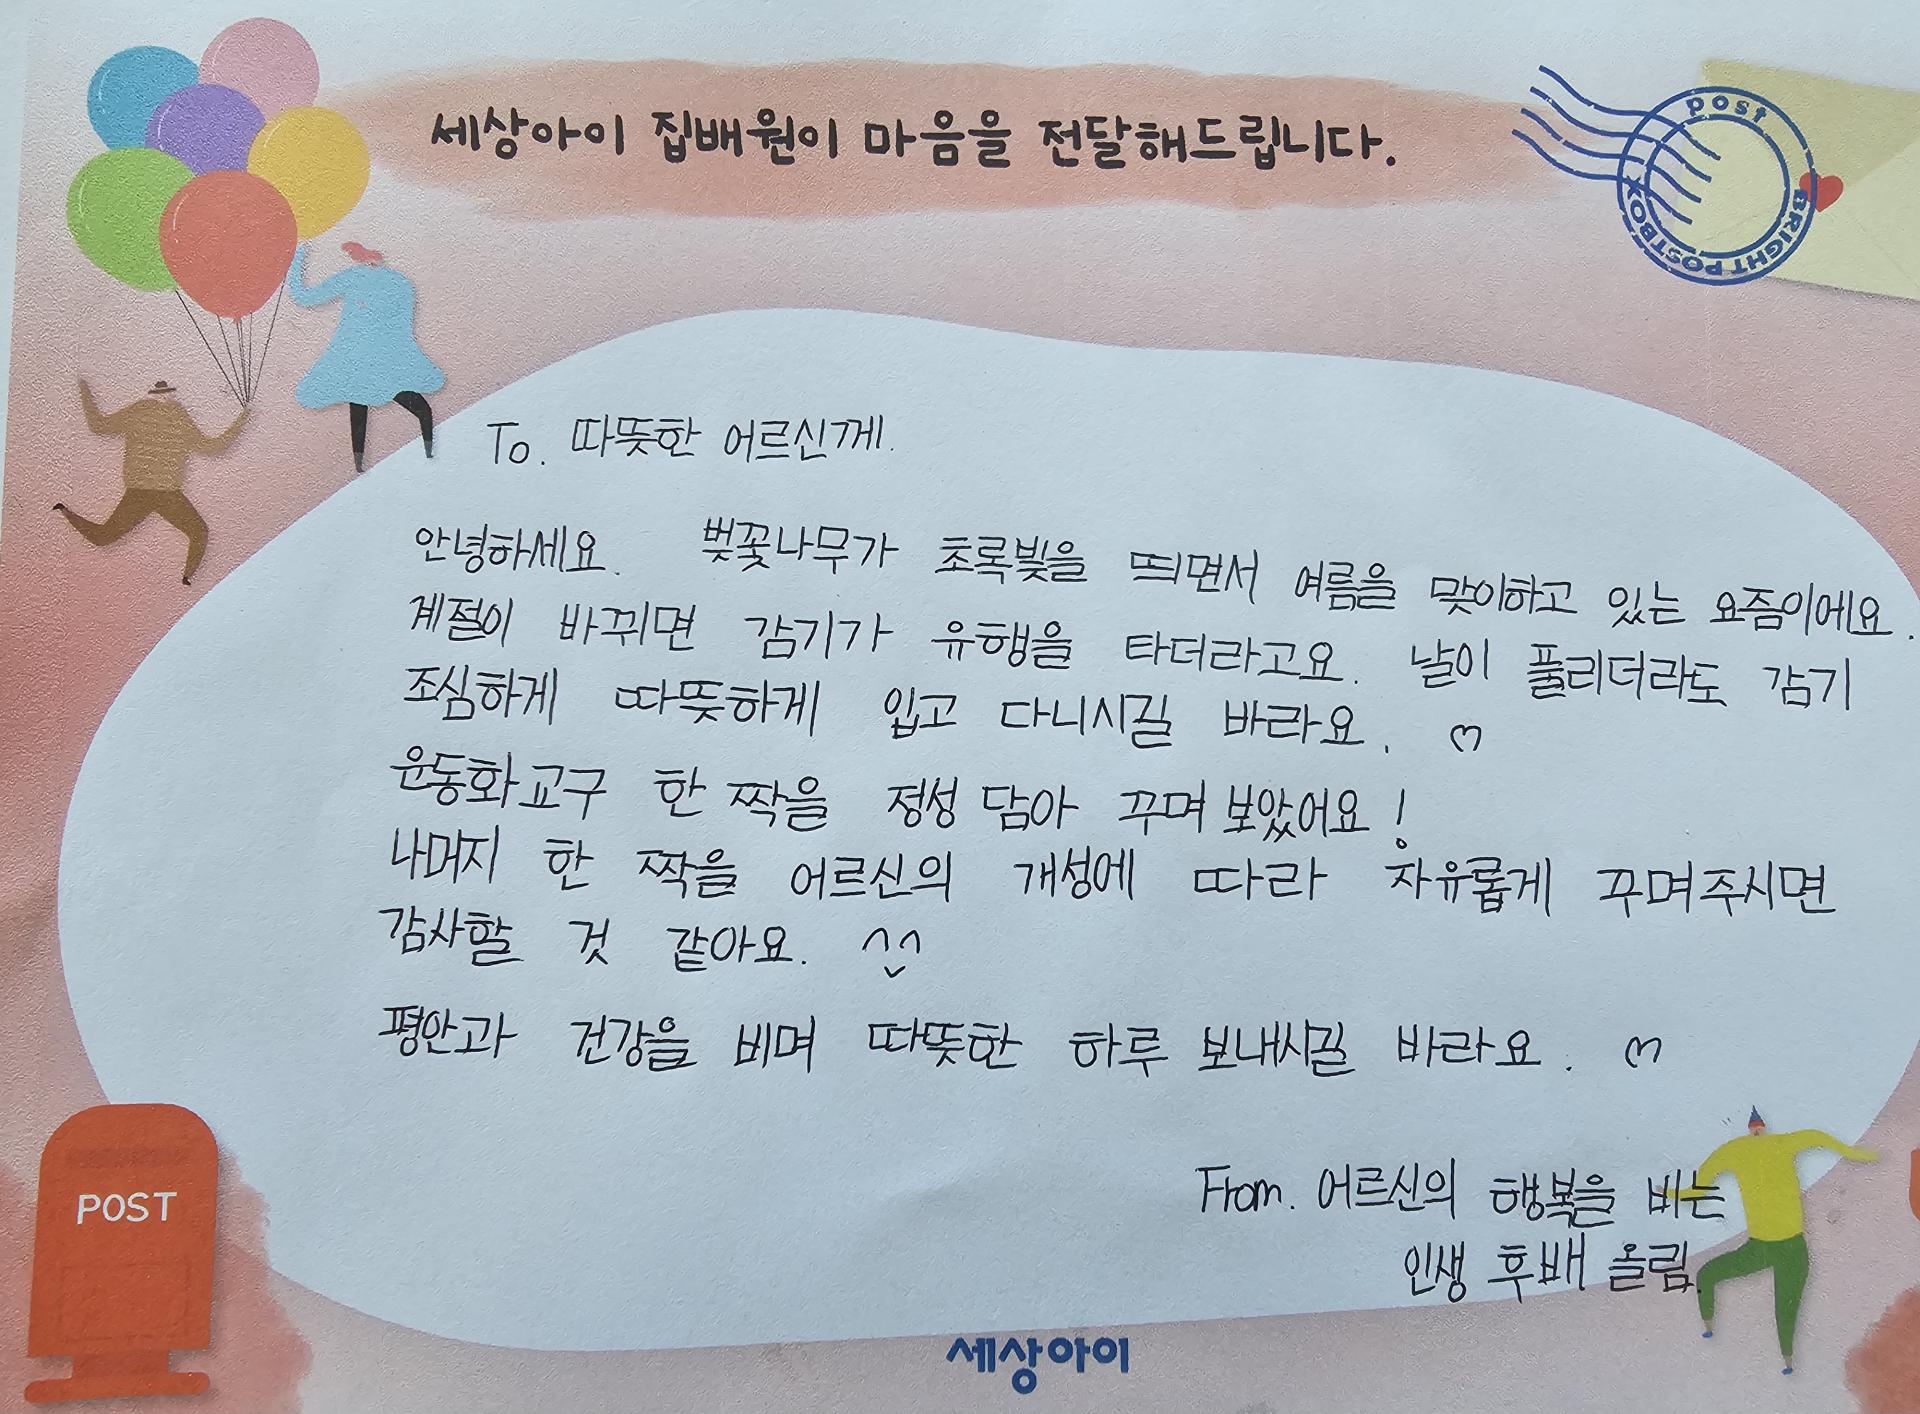 세상아이 집배원이 마음을 전달해드립니다.
post
BRIGHT POSTBOX
To. 따뜻한 어르신께.
안녕하세요. 벚꽃나무가 초록빛을 띄면서 여름을 맞이하고 있는 요즘이에요.
계절이 바뀌면 감기가 유행을 타더라고요. 날이 풀리더라도 감기
조심하게 따뜻하게 입고 다니시길 바라요. ♡
운동화교구 한 짝을 정성 담아 꾸며 보았어요!
나머지 한 짝을 어르신의 개성에 따라 자유롭게 꾸며주시면
감사할 것 같아요. ^^
평안과 건강을 비며 따뜻한 하루 보내시길 바라요. ♡
From. 어르신의 행복을 비는
인생 후배 올림.
POST
세상아이